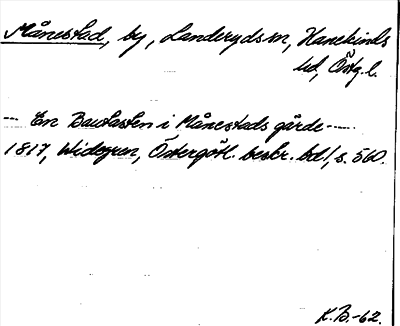 Månestad, by, Landeryds sn, Hanekinds
hd, Östg. l.
-- En Bautasten i Månestads gärde-----
1817, Widegren, Östergötl. beskr. bd 1, s. 560.
K.B.-62.